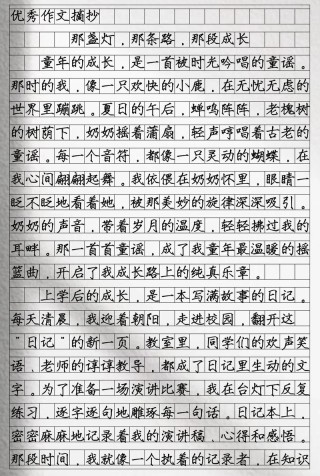 优秀作文摘抄
那盏灯，那条路，那段成长
童年的成长，是一首被时光吟唱的童谣。
那时的我，像一只欢快的小鹿，在无忧无虑的
世界里蹦跳。夏日的午后，蝉鸣阵阵，老槐树
的树荫下，奶奶摇着蒲扇，轻声哼唱着古老的
童谣。每一个音符，都像一只灵动的蝴蝶，在
我心间翩翩起舞。我依偎在奶奶怀里，眼睛一
眨不眨地看着她，被那美妙的旋律深深吸引。
奶奶的声音，带着岁月的温度，轻轻拂过我的
耳畔。那一首首童谣，成了我童年最温暖的摇
篮曲，开启了我成长路上的纯真乐章。
上学后的成长，是一本写满故事的日记。
每天清晨，我迎着朝阳，走进校园，翻开这
“日记”的新一页。教室里，同学们的欢声笑
语，老师的谆谆教导，都成了日记里生动的文
字。为了准备一场演讲比赛，我在台灯下反复
练习，逐字逐句地雕琢每一句话。日记本上，
密密麻麻地记录着我的演讲稿，心得和感悟。
那段时间，我就像一个执着的记录者，在知识